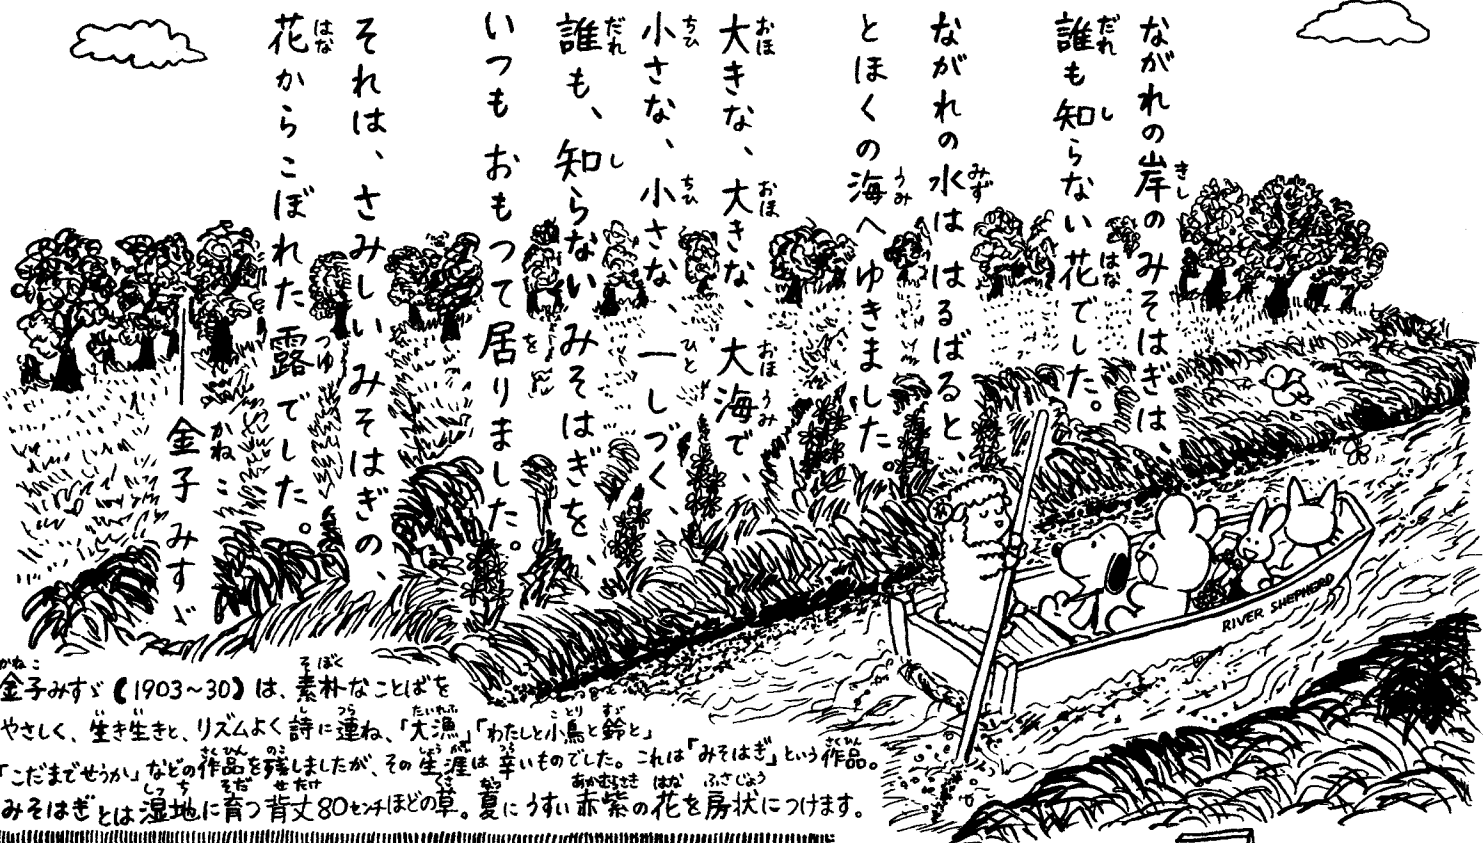 ながれの岸のみそはぎは、
誰も知らない花でした。
ながれの水ははるばると、
とほくの海へゆきました。
大きな、大きな、大海で、
小さな、小さな、一しづく、
誰も、知らないみそはぎを、
いつもおもつて居りました。
それは、さみしいみそはぎの、
花からこぼれた露でした。
——金子みすゞ
金子みすゞ(1903~30)は、素朴なことばを
やさしく、生き生きと、リズムよく詩に連ね、「大漁」「わたしと小鳥と鈴と」
「こだまでせうか」などの作品を残しましたが、その生涯は辛いものでした。これは「みそはぎ」という作品。
みそはぎとは湿地に育つ背丈80センチほどの草。夏にうすい赤紫の花を房状につけます。
RIVER SHEPHERD